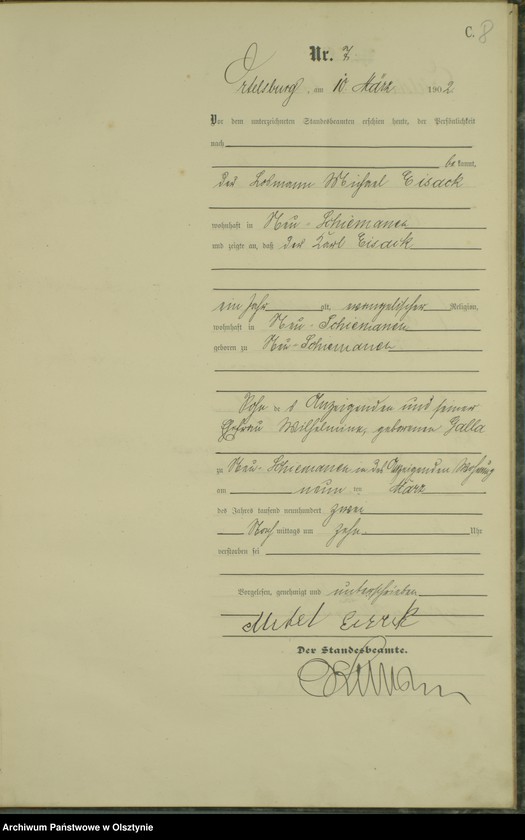 C. 8
Nr. 7
Ortelsburg, am 10 März 1902
Vor dem unterzeichneten Standesbeamten erschien heute, der Persönlichkeit
nach
be kannt,
der Losmann Michael Eisack
wohnhaft in Neu-Schiemanen
und zeigte an, daß der Karl Eisack
ein Jahr alt, evangelischer Religion,
wohnhaft in Neu-Schiemanen
geboren zu Neu-Schiemanen
Sohn des Anzeigenden und seiner
Ehefrau Wilhelmine, geborenen Galla
zu Neu-Schiemanen in des Anzeigenden Wohnung
am neun ten März
des Jahres tausend neunhundert zwei
Nach mittags um zehn Uhr
verstorben sei
Vorgelesen, genehmigt und unterschrieben
Der Standesbeamte.
Archiwum Państwowe w Olsztynie